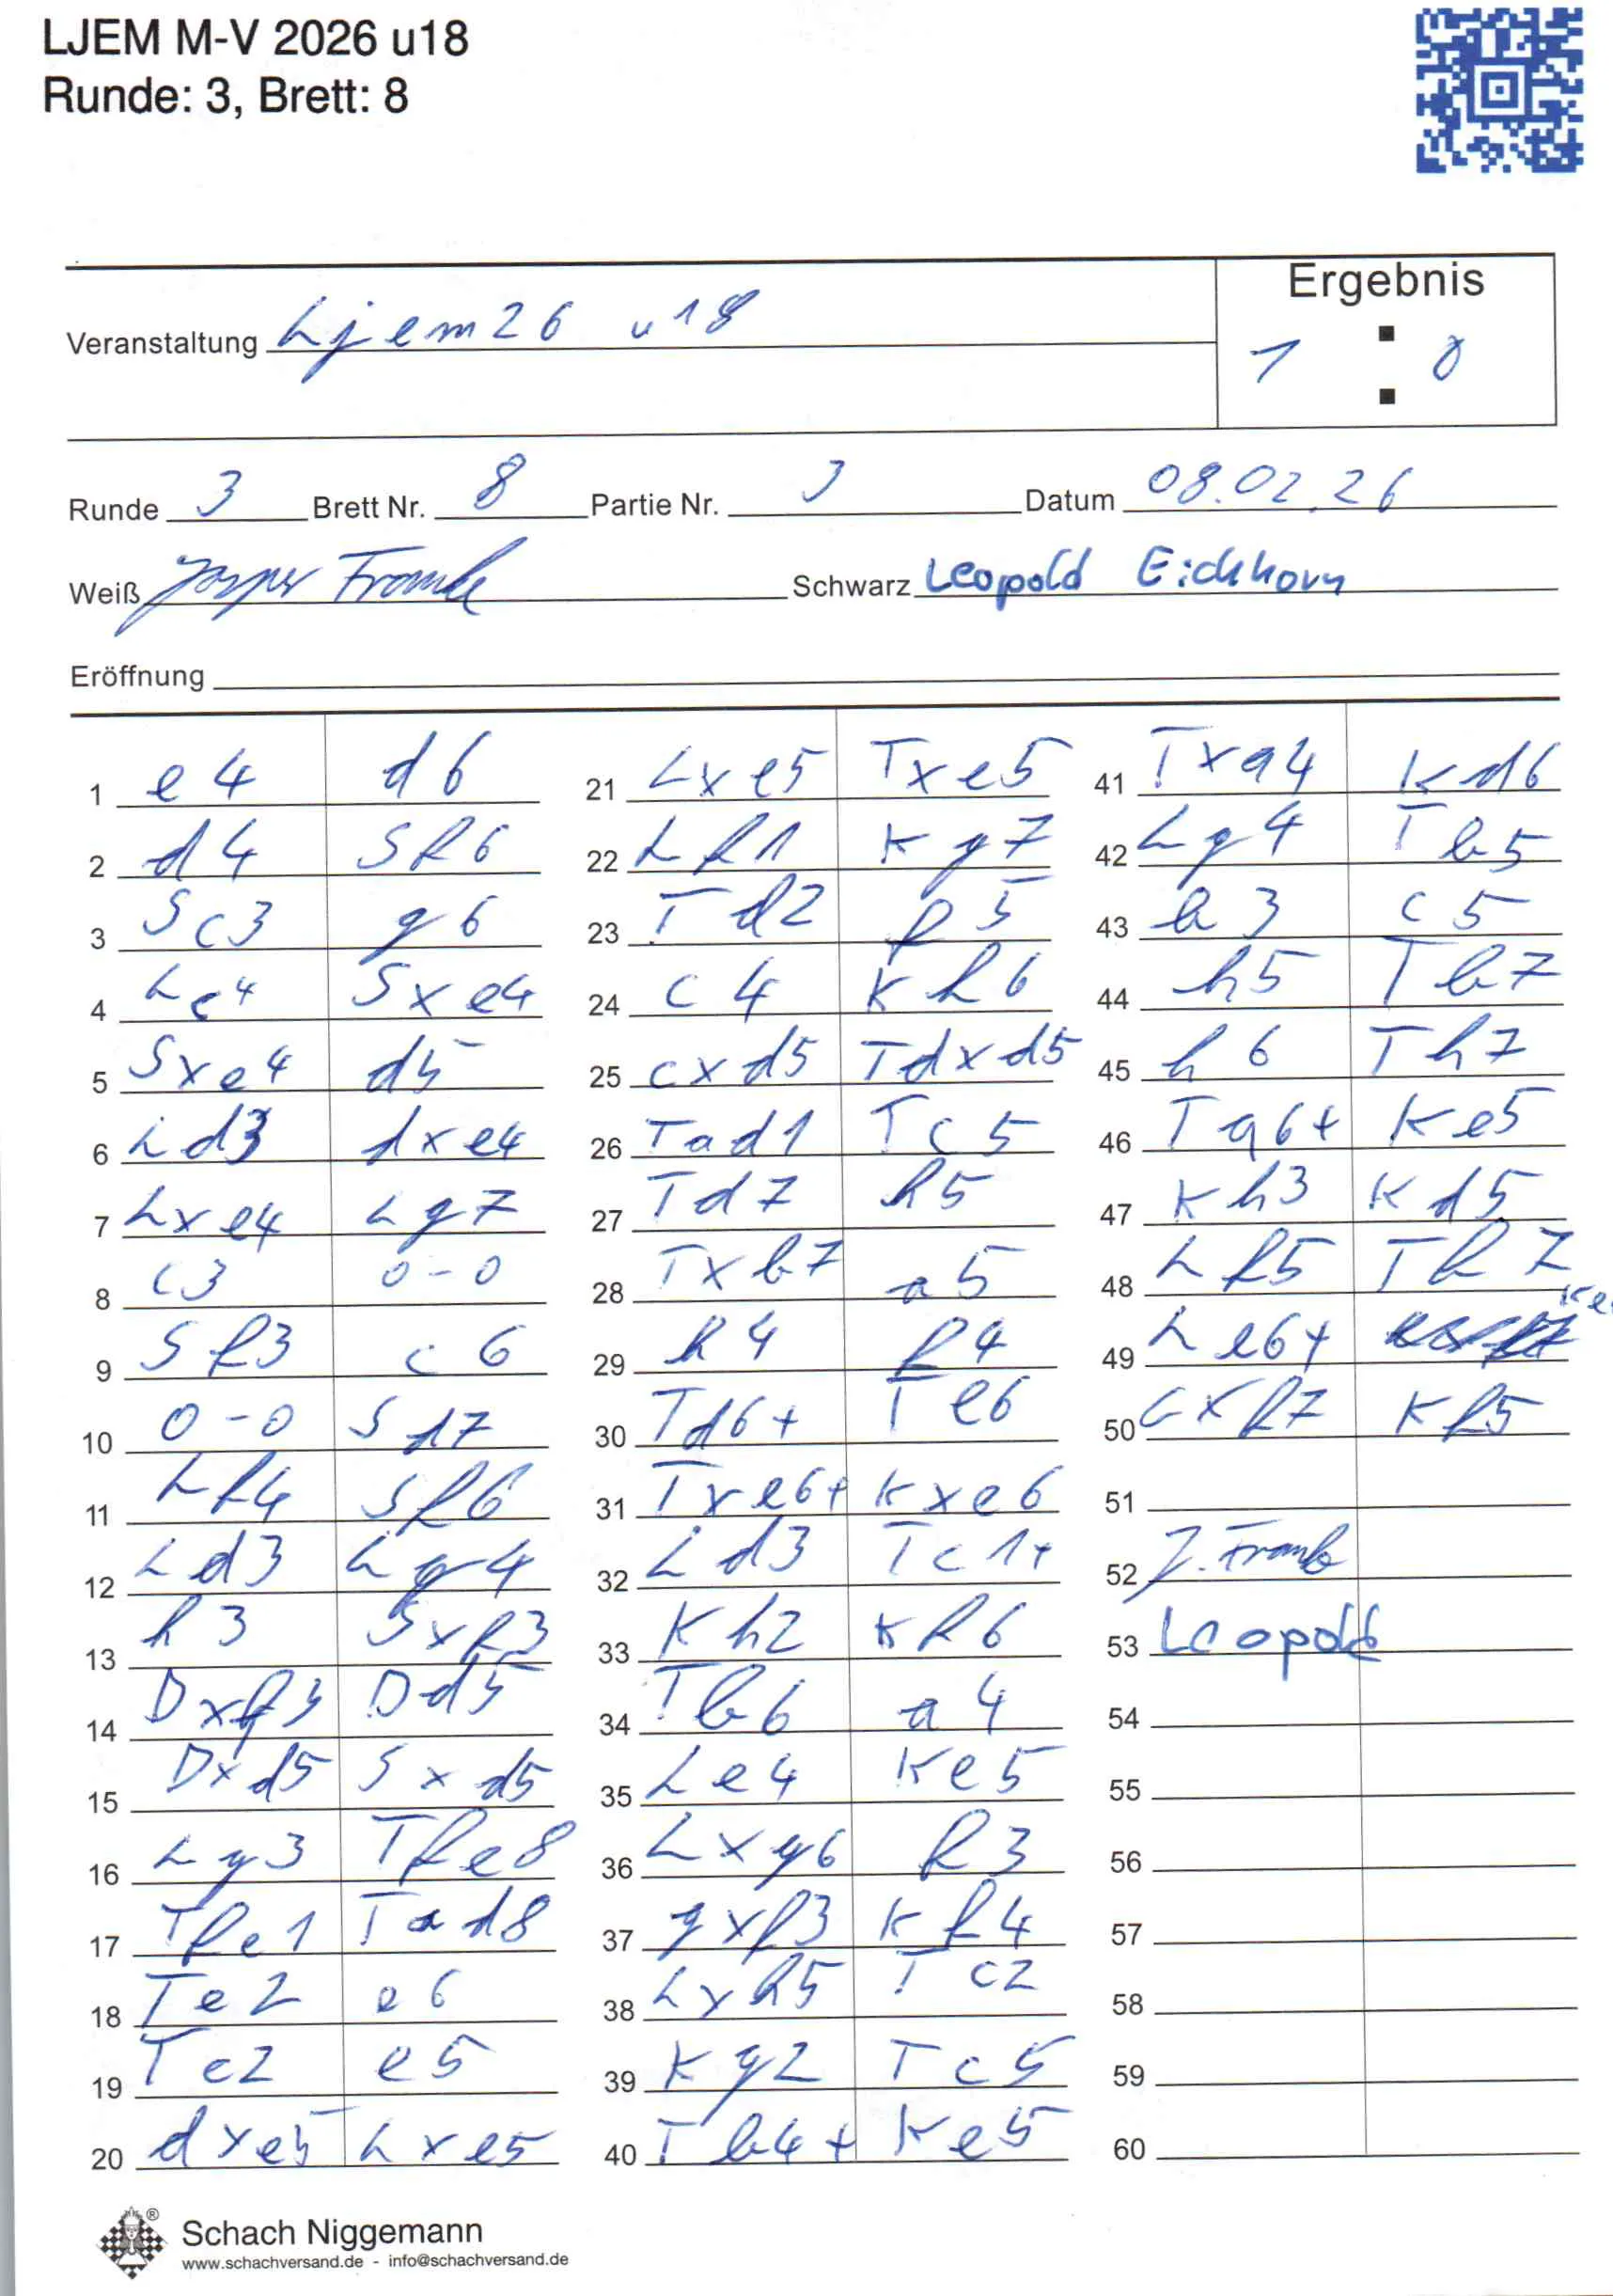 LJEM M-V 2026 u18
Runde: 3, Brett: 8
Ergebnis
Veranstaltung Ljem26 u18
1 : 0
Runde 3 Brett Nr. 8 Partie Nr. 3 Datum 08.02.26
Weiß Schwarz Leopold Eichhorn
Eröffnung
1 e4 d6
2 d4 Sf6
3 Sc3 g6
4 Lc4 Sxe4
5 Sxe4 d5
6 Ld3 dxe4
7 Lxe4 Lg7
8 c3 0-0
9 Sf3 c6
10 0-0 Sd7
11 Lf4 Sf6
12 Ld3 Lg4
13 h3 Sxf3
14 Dxf3 Dd5
15 Dxd5 Sxd5
16 Lg3 Tfe8
17 Tfe1 Tad8
18 Te2 e6
19 Tc2 e5
20 dxe5 Lxe5
21 Lxe5 Txe5
22 Lf1 Kg7
23 Td2 f5
24 c4 Kh6
25 cxd5 Tdxd5
26 Tad1 Tc5
27 Td7 h5
28 Txb7 a5
29 h4 f4
30 Td6+ Te6
31 Txe6+ Kxe6
32 Ld3 Tc1+
33 Kh2 Kf6
34 Tb6 a4
35 Le4 Ke5
36 Lxg6 f3
37 gxf3 Kf4
38 Lxh5 Tc2
39 Kg2 Tc5
40 Tb4+ Ke5
41 Txa4 Kd6
42 Lg4 Tb5
43 b3 c5
44 h5 Tb7
45 h6 Th7
46 Ta6+ Ke5
47 Kh3 Kd5
48 Lf5 Tf7
49 Le6+
50 Lxf7 Kf5
51
52 J. Franke
53 Leopold
54
55
56
57
58
59
60
Schach Niggemann
www.schachversand.de - info@schachversand.de